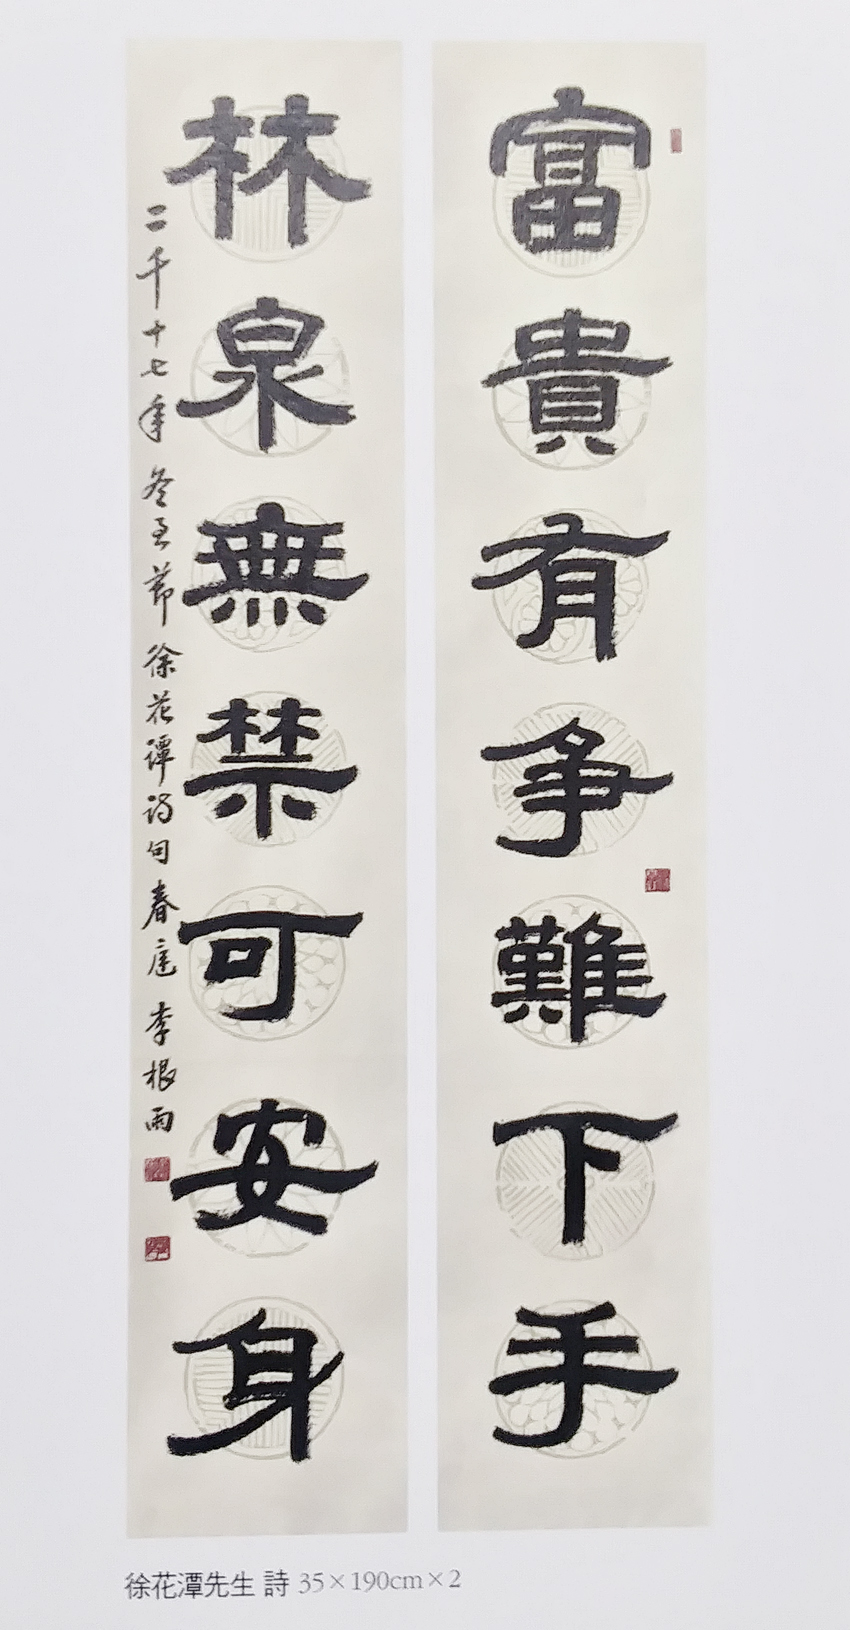 富貴有爭難下手
林泉無禁可安身
二千十七年 冬至節 徐花潭詩句 春庭 李根雨
徐花潭先生 詩 35×190cm×2